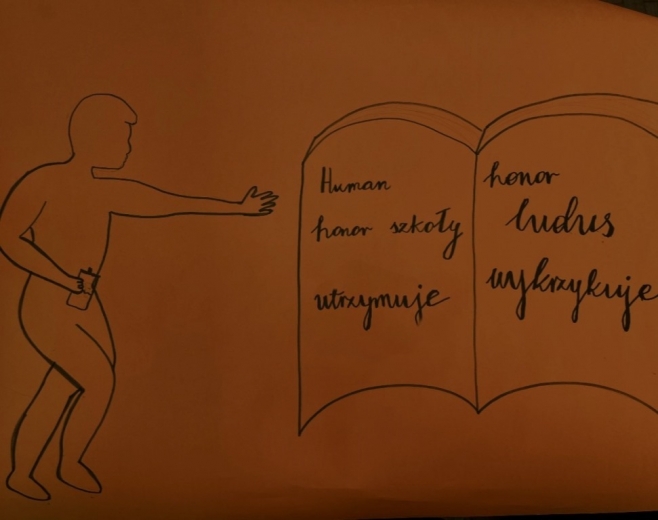 Human
honor szkoły
utrzymuje
honor
ludus
wykrzykuje